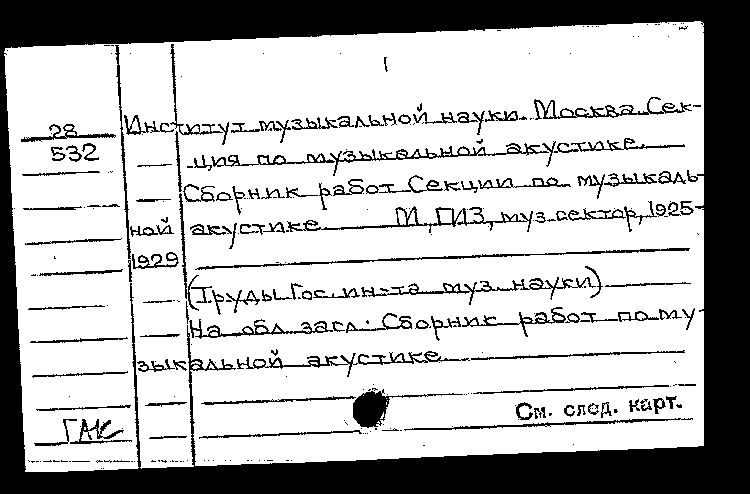 1
28
532
Институт музыкальной науки. Москва. Сек-
ция по музыкальной акустике.
Сборник работ Секции по музыкаль-
ной акустике. М., ГИЗ, муз. сектор, 1925-
1929
(Труды Гос. ин-та муз. науки)
На обл. загл.: Сборник работ по му-
зыкальной акустике
См. след. карт.
ГАК